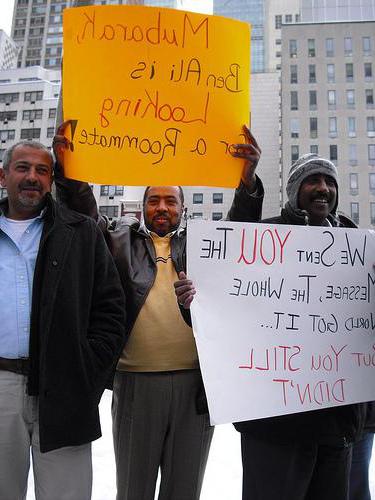 Mubarak,
Ben Ali is
Looking
for a Roommate!
WE SENT YOU THE
MESSAGE, THE WHOLE
WORLD GOT IT...
BUT YOU STILL
DIDN'T